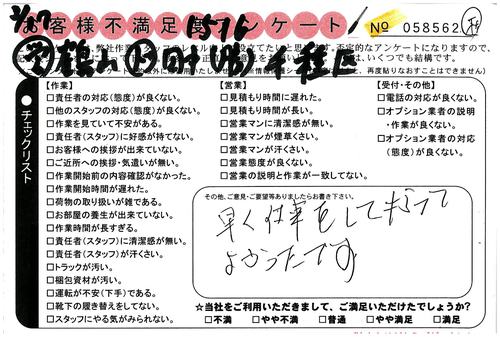 お客様不満足度アンケート! № 058562
【作業】
□責任者の対応(態度)が良くない。
□他のスタッフの対応(態度)が良くない。
□作業を見ていて不安がある。
□責任者(スタッフ)に好感が持てない。
□お客様への挨拶が出来ていない。
□ご近所への挨拶・気遣いが無い。
□作業開始前の内容確認がなかった。
□作業開始時間が遅れた。
□荷物の取り扱いが雑である。
□お部屋の養生が出来ていない。
□作業時間が長すぎる。
□責任者(スタッフ)に清潔感が無い。
□責任者(スタッフ)が汗くさい。
□トラックが汚い。
□梱包資材が汚い。
□運転が不安(下手)である。
□靴下の履き替えをしてない。
□スタッフにやる気がみられない。
【営業】
□見積もり時間に遅れた。
□見積もり時間が長い。
□営業マンに清潔感が無い。
□営業マンが煙草くさい。
□営業マンが汗くさい。
□営業態度が良くない。
□営業の説明と作業が一致してない。
【受付・その他】
□電話の対応が良くない。
□オプション業者の説明
・作業が良くない。
□オプション業者の対応
(態度)が良くない。
チェックリスト
その他、ご意見・ご要望等ありましたらお書き下さい。
早く仕事をしてもらって
よかったです
☆当社をご利用いただきまして、ご満足いただけたでしょうか?
□不満 □やや不満 □普通 □やや満足 □満足